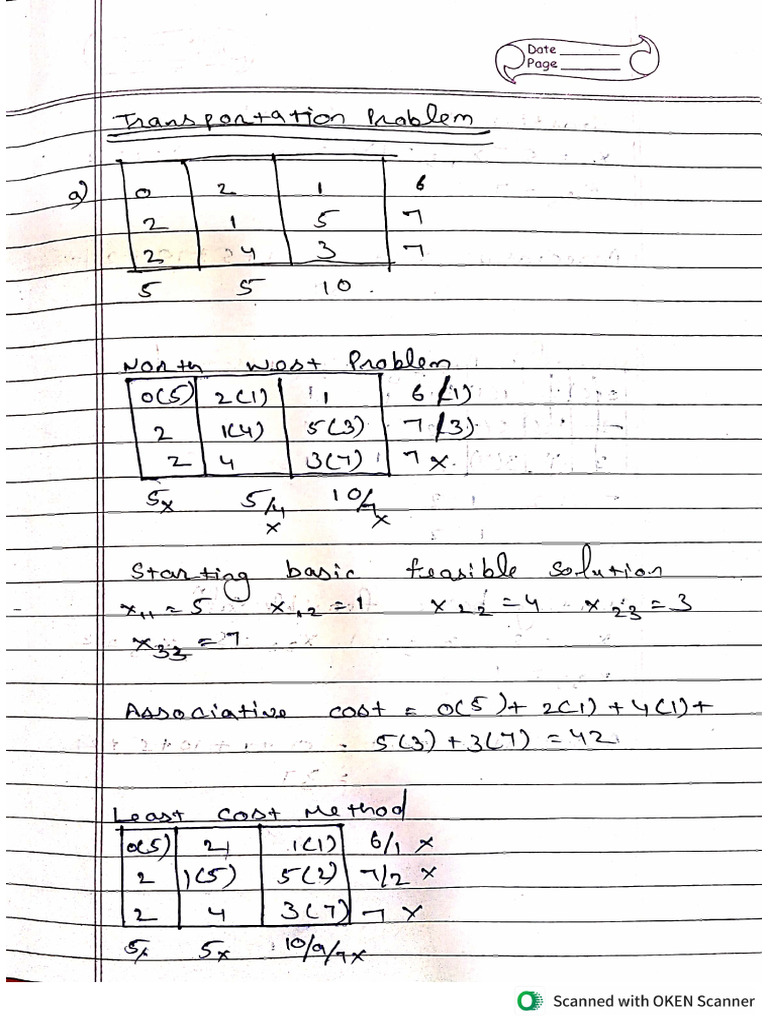 Date
Page
Transportation Problem
a) 0 2 1 6
2 1 5 7
2 4 3 7
5 5 10
North West Problem
0(5) 2(1) 1 6/(1)
2 1(4) 5(3) 7/(3)
2 4 3(7) 7x
5x 5/4x 10/7x
Starting basic feasible solution
x₁₁ = 5 x₁₂ = 1 x₂₂ = 4 x₂₃ = 3
x₃₃ = 7
Associative cost = 0(5) + 2(1) + 4(1) +
5(3) + 3(7) = 42
Least Cost Method
0(5) 2 1(1) 6/1 x
2 1(5) 5(2) 7/2 x
2 4 3(7) 7 x
5x 5x 10/9/7x
Scanned with OKEN Scanner